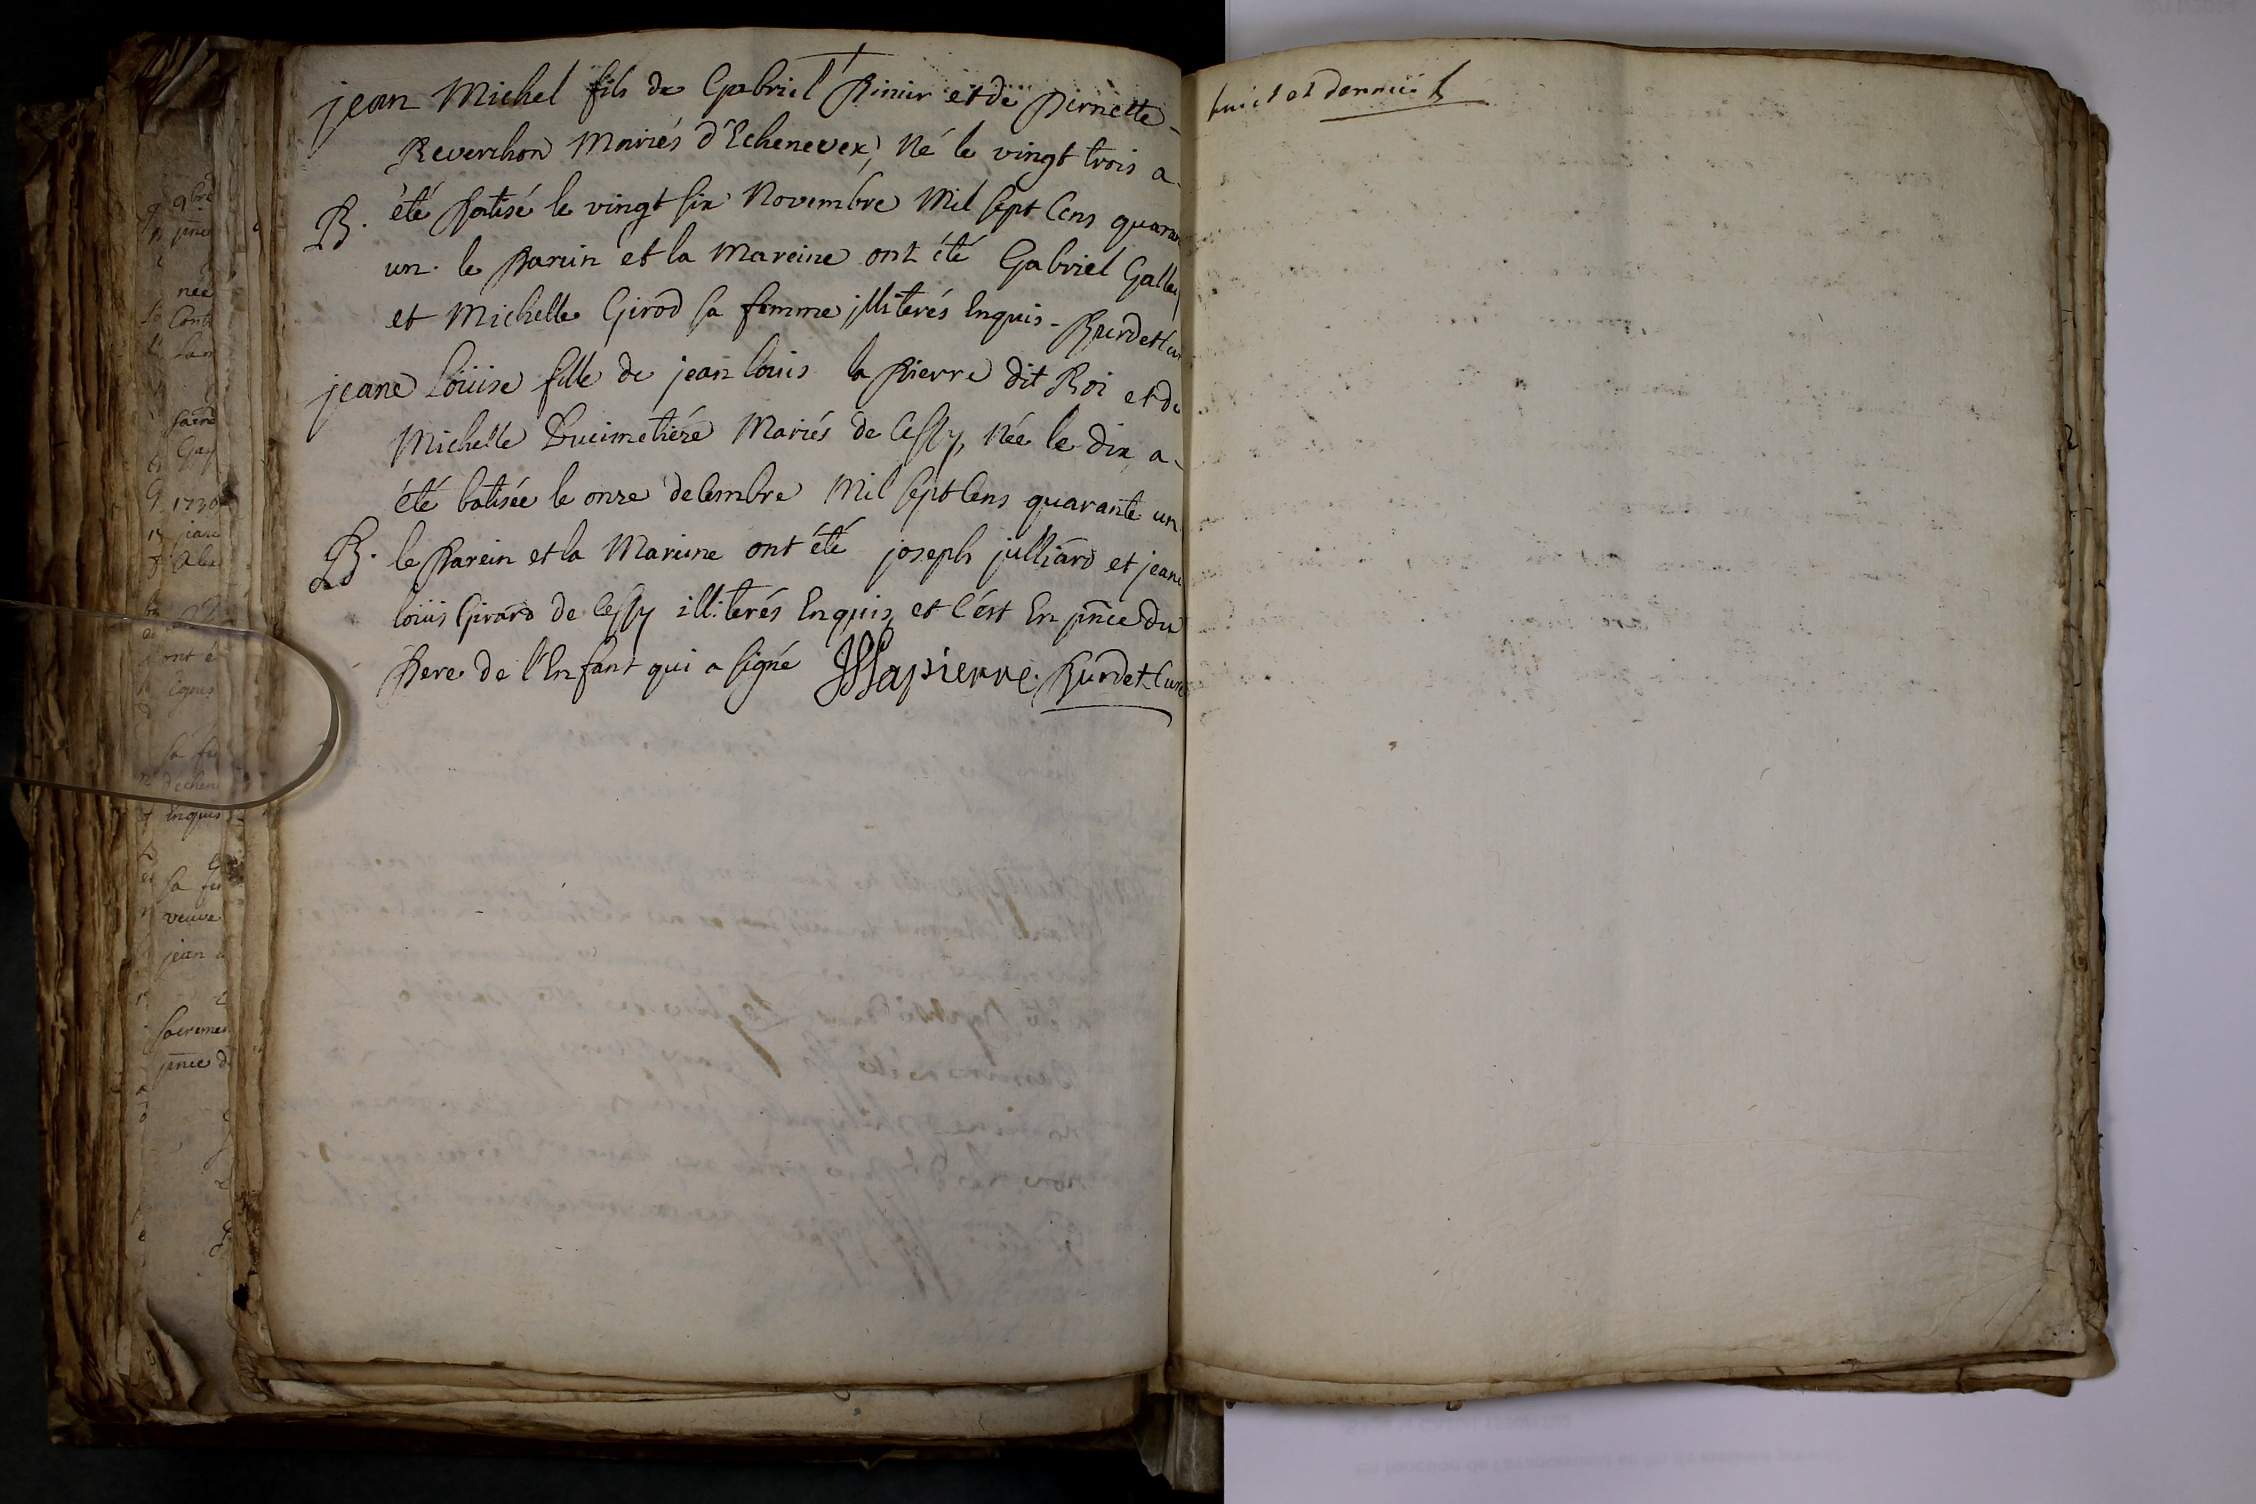 jean Michel fils de Gabriel Pinier et de Pernette
Reverchon Mariés d'Echenevex, Né le vingt trois a
B. été Batisé le vingt six Novembre Mil sept Cens quaran
un. le Parein et la Mareine ont été Gabriel Gallay
et Michelle Girod sa femme illiterés Enquis - Burdet Cu
jeane Loüise fille de jean louis la Pierre dit Roi et de
Michelle Ducimetiére Mariés de Cessy, Née le dix a
été batisée le onze decembre Mil sept Cens quarante un
B. le Parein et la Mareine ont été joseph julliard et jeane
loüis Girard de Cessy illiterés Enquis, et c'est En pnce du
Pere de l'Enfant qui a signé JLLapierre. Burdet Curé
huict et dernier f
9bre
née
1730
ont é
sa fe
Enquis
veuve
jean
sacremen
pnce d